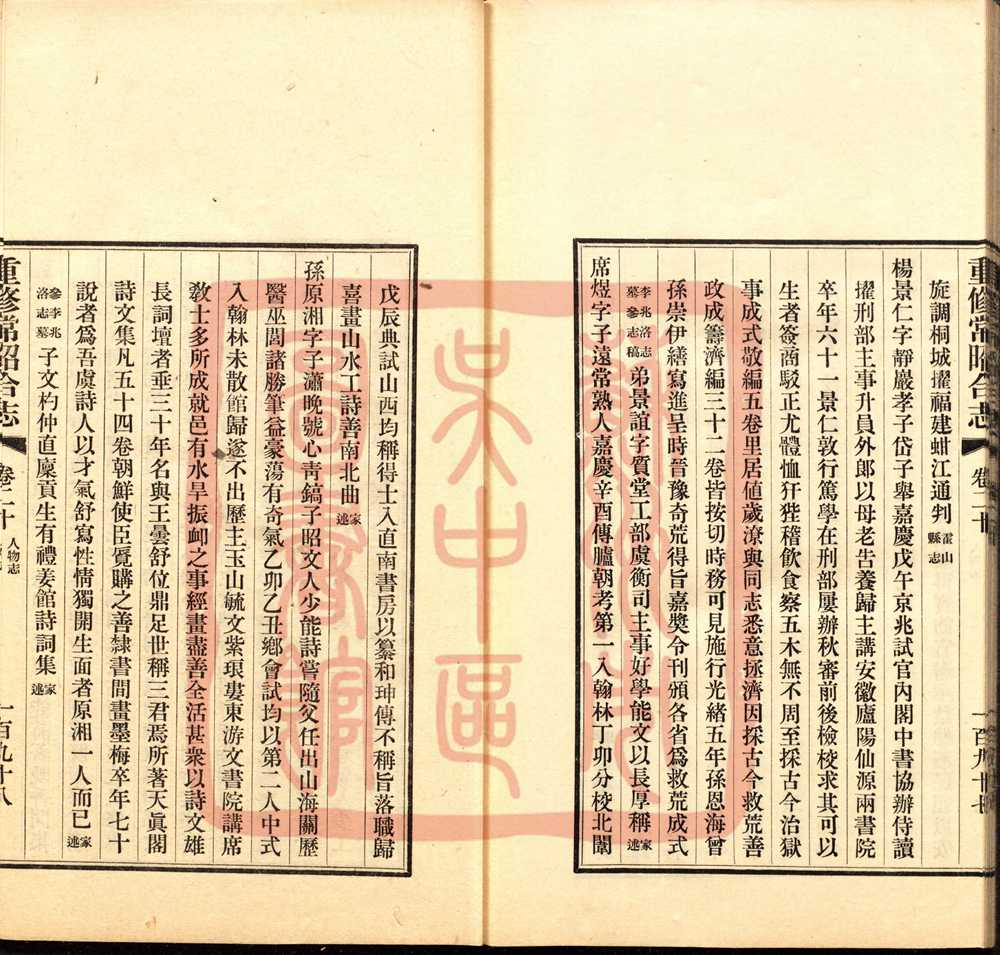 重修常昭合志 卷二十
旋調桐城擢福建蚶江通判霍山縣志
楊景仁字靜巖孝子岱子舉嘉慶戊午京兆試官內閣中書協辦侍讀
擢刑部主事升員外郎以母老告養歸主講安徽廬陽仙源兩書院
卒年六十一景仁敦行篤學在刑部屢辦秋審前後檢校求其可以
生者簽商駁正尤體恤犴狴稽飲食察五木無不周至採古今治獄
事成式敬編五卷里居値歲潦與同志悉意拯濟因採古今救荒善
政成籌濟編三十二卷皆按切時務可見施行光緖五年孫恩海曾
孫崇伊繕寫進呈時晉豫奇荒得旨嘉獎令刊頒各省爲救荒成式
李兆洛志墓參志稿弟景誼字質堂工部虞衡司主事好學能文以長厚稱家述
席煜字子遠常熟人嘉慶辛酉傳臚朝考第一入翰林丁卯分校北闈
戊辰典試山西均稱得士入直南書房以纂和珅傳不稱旨落職歸
喜畫山水工詩善南北曲家述
孫原湘字子瀟晚號心靑鎬子昭文人少能詩嘗隨父任出山海關歷
醫巫閭諸勝筆益豪蕩有奇氣乙卯乙丑鄉會試均以第二人中式
入翰林未散館歸遂不出歷主玉山毓文紫琅婁東游文書院講席
敎士多所成就邑有水旱振卹之事經畫盡善全活甚衆以詩文雄
長詞壇者垂三十年名與王曇舒位鼎足世稱三君焉所著天眞閣
詩文集凡五十四卷朝鮮使臣覓購之善隸書間畫墨梅卒年七十
說者爲吾虞詩人以才氣舒寫性情獨開生面者原湘一人而已家述
參李兆洛志墓子文杓仲直廩貢生有禮姜館詩詞集家述
重修常昭合志 卷二十 人物志 一百九十八